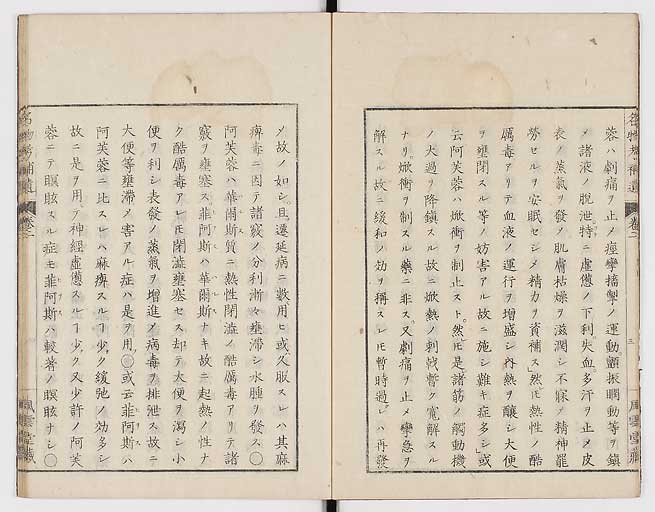 蓉ハ劇痛ヲ止メ痙攣搐掣ノ運動顫振瞤動等ヲ鎮
メ諸液ノ脱泄特ニ虚憊ノ下利失血多汗ヲ止メ皮
表ノ蒸氣ヲ發メ肌膚枯燥ヲ滋潤シ不寐ノ精神罷
勞セルヲ安眠セシメ精力ヲ資補ス然𪜈熱性ノ酷
厲毒アリテ血液ノ運行ヲ増盛シ内熱ヲ釀シ大便
ヲ壅閉スル等ノ妨害アル故ニ施シ難キ症多シ或
云阿芙蓉ハ焮衝ヲ制止スト然𪜈是諸筋ノ觸動機
ノ大過ヲ降鎮スル故ニ焮熱ノ刺戟暫ク寛解スル
ナリ焮衝ヲ制スル藥ニ非ス又劇痛ヲ止メ攣急ヲ
解スル故ニ緩和ノ効ヲ稱スレ𪜈暫時過レハ再發
メ故ノ如シ且遷延病ニ數用ヒ或久服スレハ其麻
痺毒ニ因テ諸竅ノ分利漸々壅滞シ水腫ヲ發ス○
阿芙蓉ハ華爾斯質ニ熱性閉澁ノ酷厲毒アリテ諸
竅ヲ壅塞ス菲阿斯ハ華爾斯ナキ故ニ起熱ノ性ナ
ク酷厲毒アレ𪜈閉澁壅塞セス却テ大便ヲ瀉シ小
便ヲ利シ表發ノ蒸氣ヲ増進メ病毒ヲ排泄ス故ニ
大便等壅滞ノ害アル症ハ是ヲ用○或云菲阿斯ハ
阿芙蓉ニ比スレハ麻痺スルヿ少ク緩弛ノ効多シ
故ニ是ヲ用テ神經虚憊スルヿ少ク又少許ノ阿芙
蓉ニテ瞑眩スル症モ菲阿斯ハ較著ノ瞑眩ナシ○
名物考補遺
卷二
三
風雲堂藏